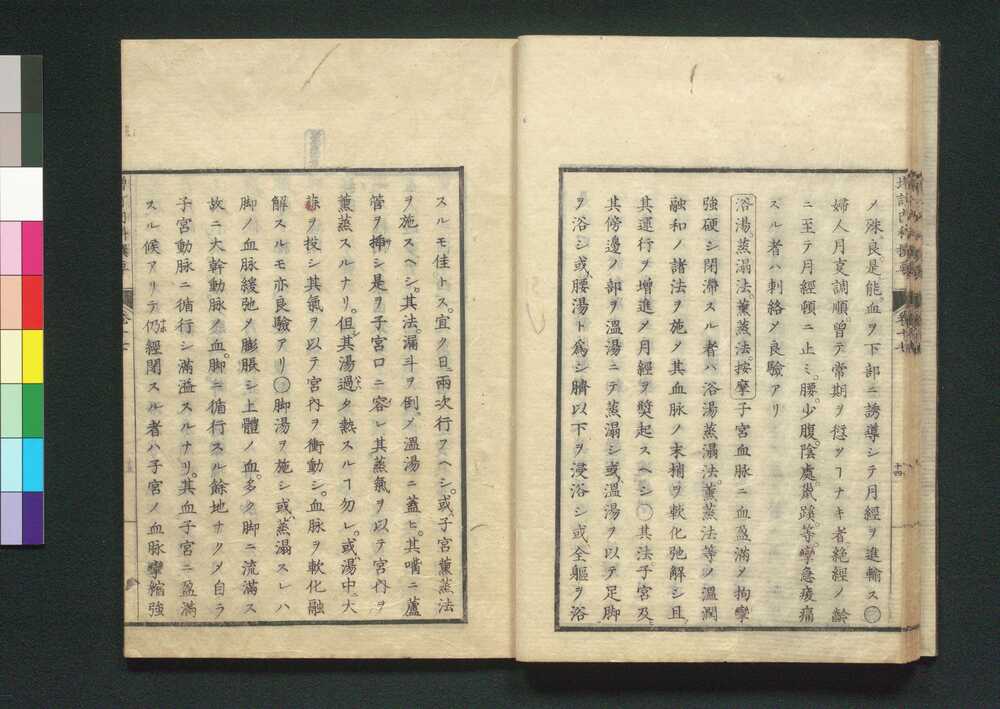 増訂内科撰要 巻十七
メ殊良。是能血ヲ下部ニ誘導シテ月經ヲ進輸ス○
婦人月處調順。曽テ常期ヲ愆ツヿナキ者絶經ノ齢
ニ至テ月經頓ニ止ミ。腰。少腹。陰處。蹠。等攣急疼痛
スル者ハ刺絡メ良驗アリ
浴湯。蒸溻法。薫蒸法。按摩 子宮血脉ニ血盈滿メ拘攣
強硬シ閉滯スル者ハ浴湯蒸溻法。薫蒸法等ノ温潤
融和ノ諸法ヲ施メ其血脉ノ末梢ヲ軟化弛解シ且
其運行ヲ増進メ月經ヲ奨起スヘシ○其法子宮及
其傍邉ノ部ヲ温湯ニテ蒸溻シ或温湯ヲ以テ足脚
ヲ浴シ或腰湯ト爲シ臍以下ヲ浸浴シ或全軀ヲ浴
十四
スルモ佳トス。宜ク日ニ兩次行フヘシ。或子宮薫蒸法
ヲ施スヘシ。其法。漏斗ヲ倒メ温湯ニ蓋ヒ。其嘴ニ蘆
管ヲ挿シ是ヲ子宮口ニ容レ其蒸氣ヲ以テ宮内ヲ
薫蒸スルナリ。但其湯過タ熱スルヿ勿レ。或湯中ニ大
蒜ヲ投シ其氣ヲ以テ宮内ヲ衝動シ。血脉ヲ軟化融
解スルモ亦良驗アリ○脚湯ヲ施シ或蒸溻スレハ
脚ノ血脉緩弛メ膨脹シ上體ノ血。多ク脚ニ流滿ス
故ニ大幹動脉ノ血。脚ニ循行スル餘地ナクメ自ラ
子宮動脉ニ循行シ滿溢スルナリ。其血子宮ニ盈滿
スル候アリテ仍經閉スル者ハ子宮ノ血脉攣縮強